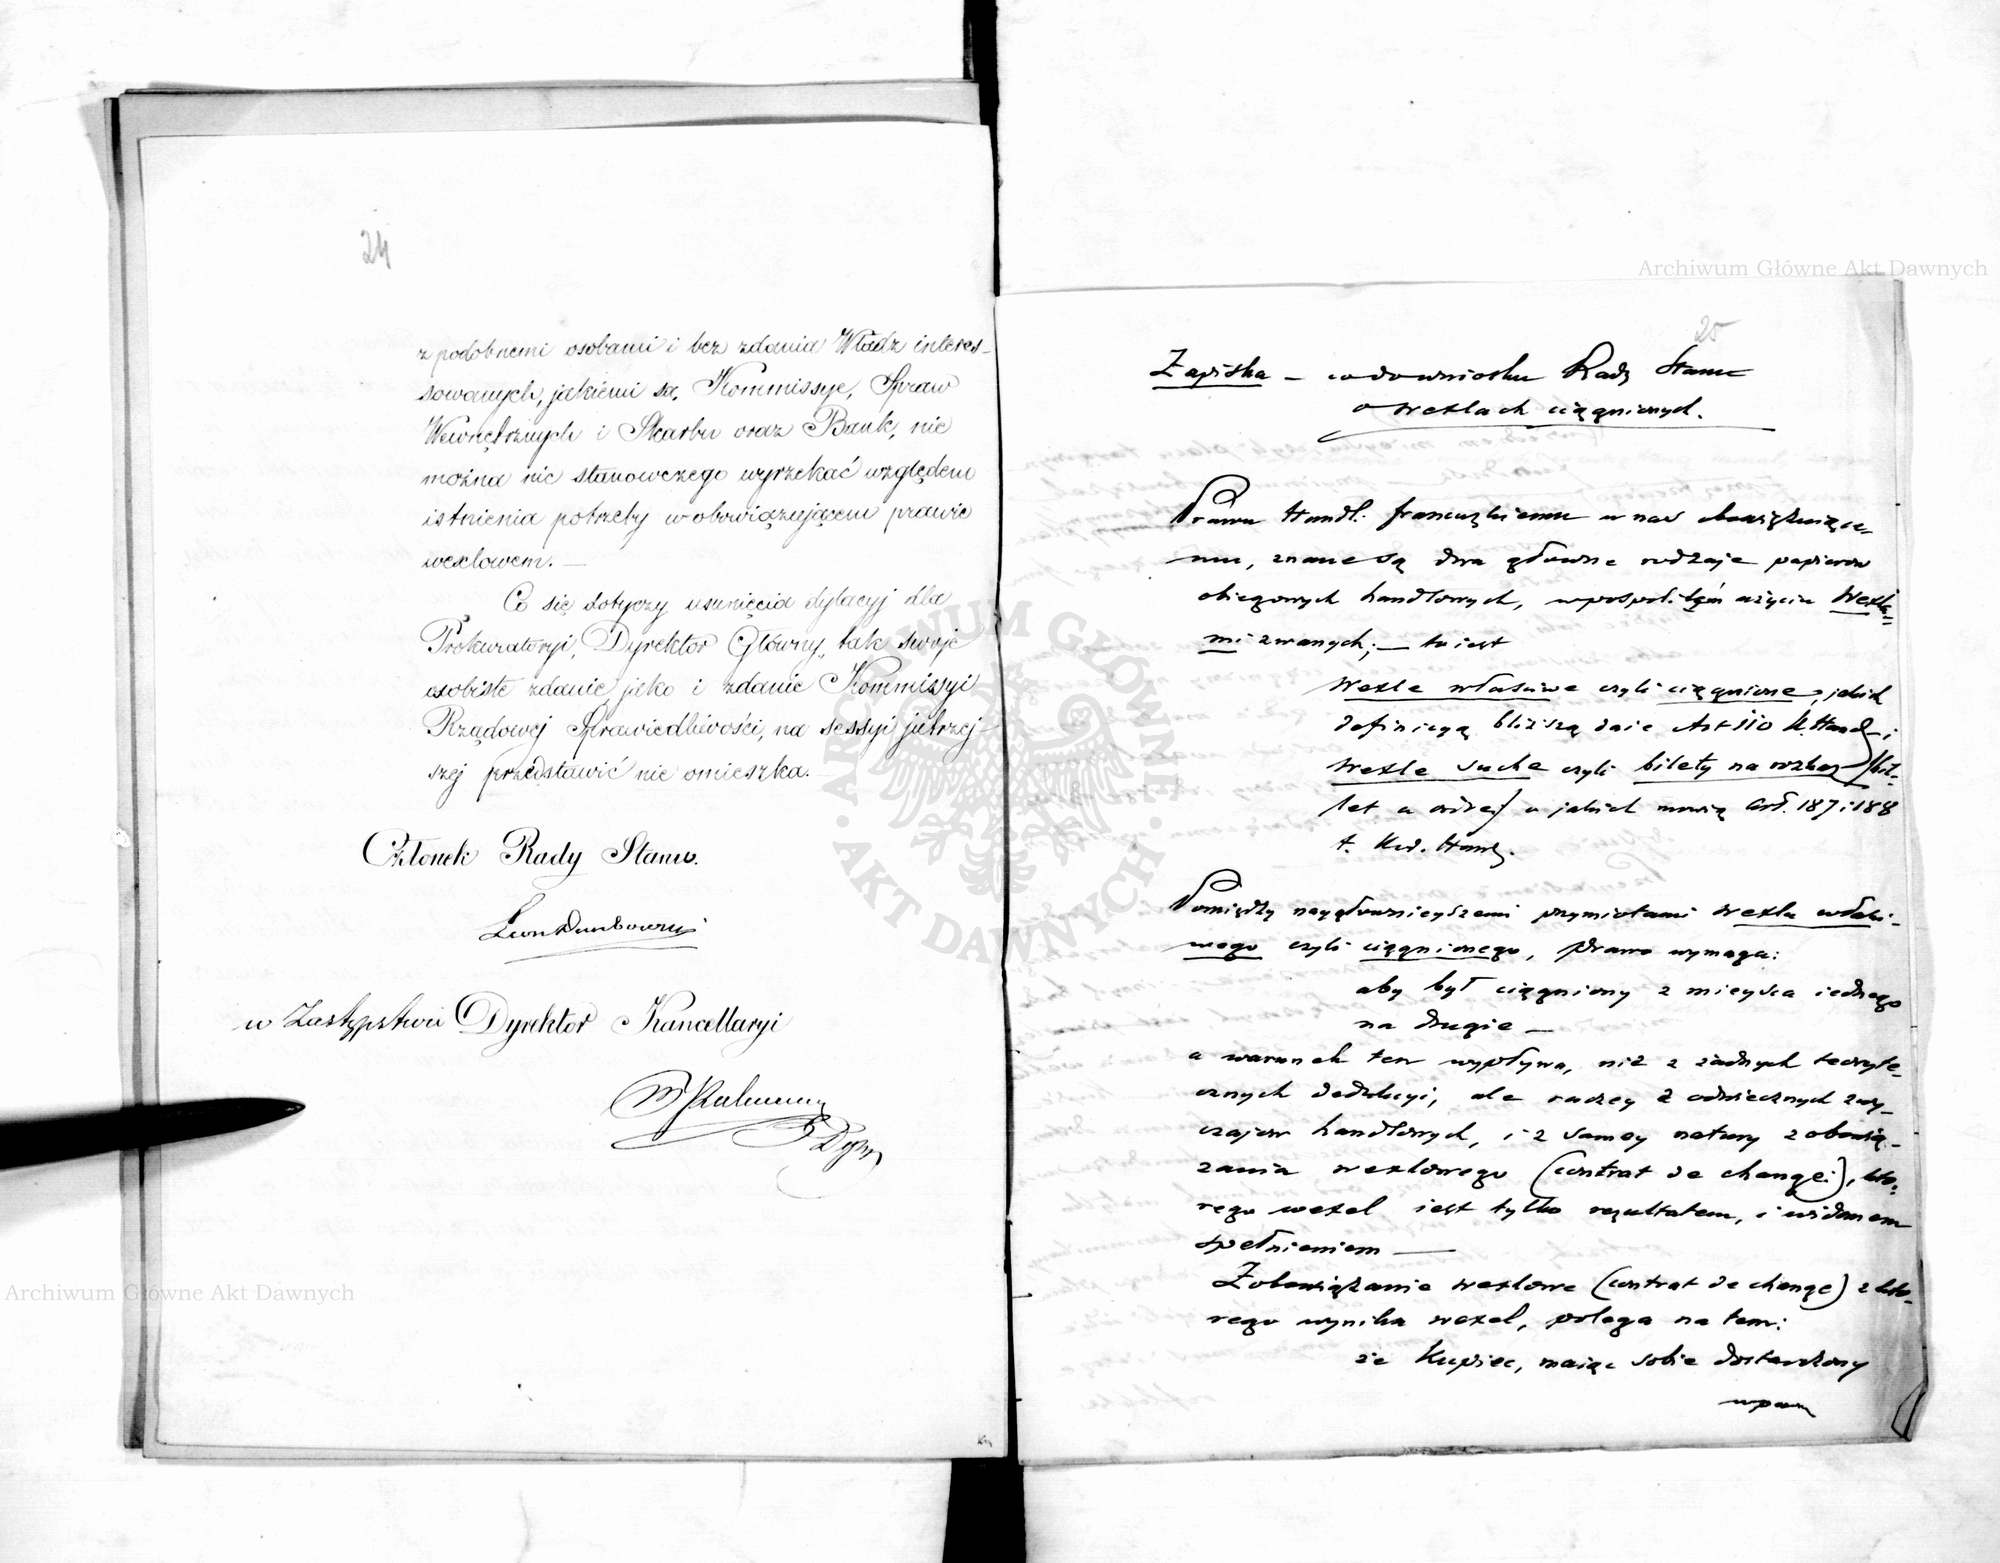 24
z podobnemi osobami i bez zdania Władz interes-
sowanych, jakiemi są, Kommissye, Spraw
Wewnętrznych i Skarbu oraz Bank, nie
można nic stanowczego wyrzekać względem
istnienia potrzeby w obowiązującem prawie
wexlowem. —
Co się dotyczy usunięcia dylacyj dla
Prokuratoryi, Dyrektor Główny, tak swoje
osobiste zdanie, jako i zdanie Kommissyi
Rządowej Sprawiedliwości, na sessyi jutrzej-
szej przedstawić nie omieszka. —
Członek Rady Stanu.
Leon Dembowski
w Zastępstwie Dyrektor Kancellaryi
Archiwum Główne Akt Dawnych
ARCHIWUM GŁÓWNE
AKT DAWNYCH
Archiwum Główne Akt Dawnych
25
Zapiska — co do wniosku Rady Stanu
o wexlach ciągnionych.
Prawu Handl. francuzkiemu u nas obowiązuiące-
mu, znane są dwa główne rodzaje papierów
obiegowych handlowych, w pospolitém użyciu Wexla-
mi zwanych; — to iest
Wexle właściwe czyli ciągnione, jakich
definicyą bliższą daie Art 110 K. Handl. i
Wexle suche czyli bilety na rozkaz (bil-
let a ordre) o jakich mówią Art. 187 i 188
t. Kod. Handl.
Pomiędzy naygłównieyszemi przymiotami wexlu właści-
wego czyli ciągnionego, prawo wymaga:
aby był ciągniony z mieysca iednego
na drugie —
a warunek ten wypływa, nie z żadnych teoryte-
cznych dedukcyi, ale raczey z odwiecznych zwy-
czajów handlowych, i z samey natury zobowią-
zania wexlowego (contrat de change), któ-
rego wexel iest tylko rezultatem, i widomem
spełnieniem —
Zobowiązanie wexlowe (contrat de change) z któ-
rego wynika wexel, polega na tem:
że Kupiec, maiąc sobie dostawiony